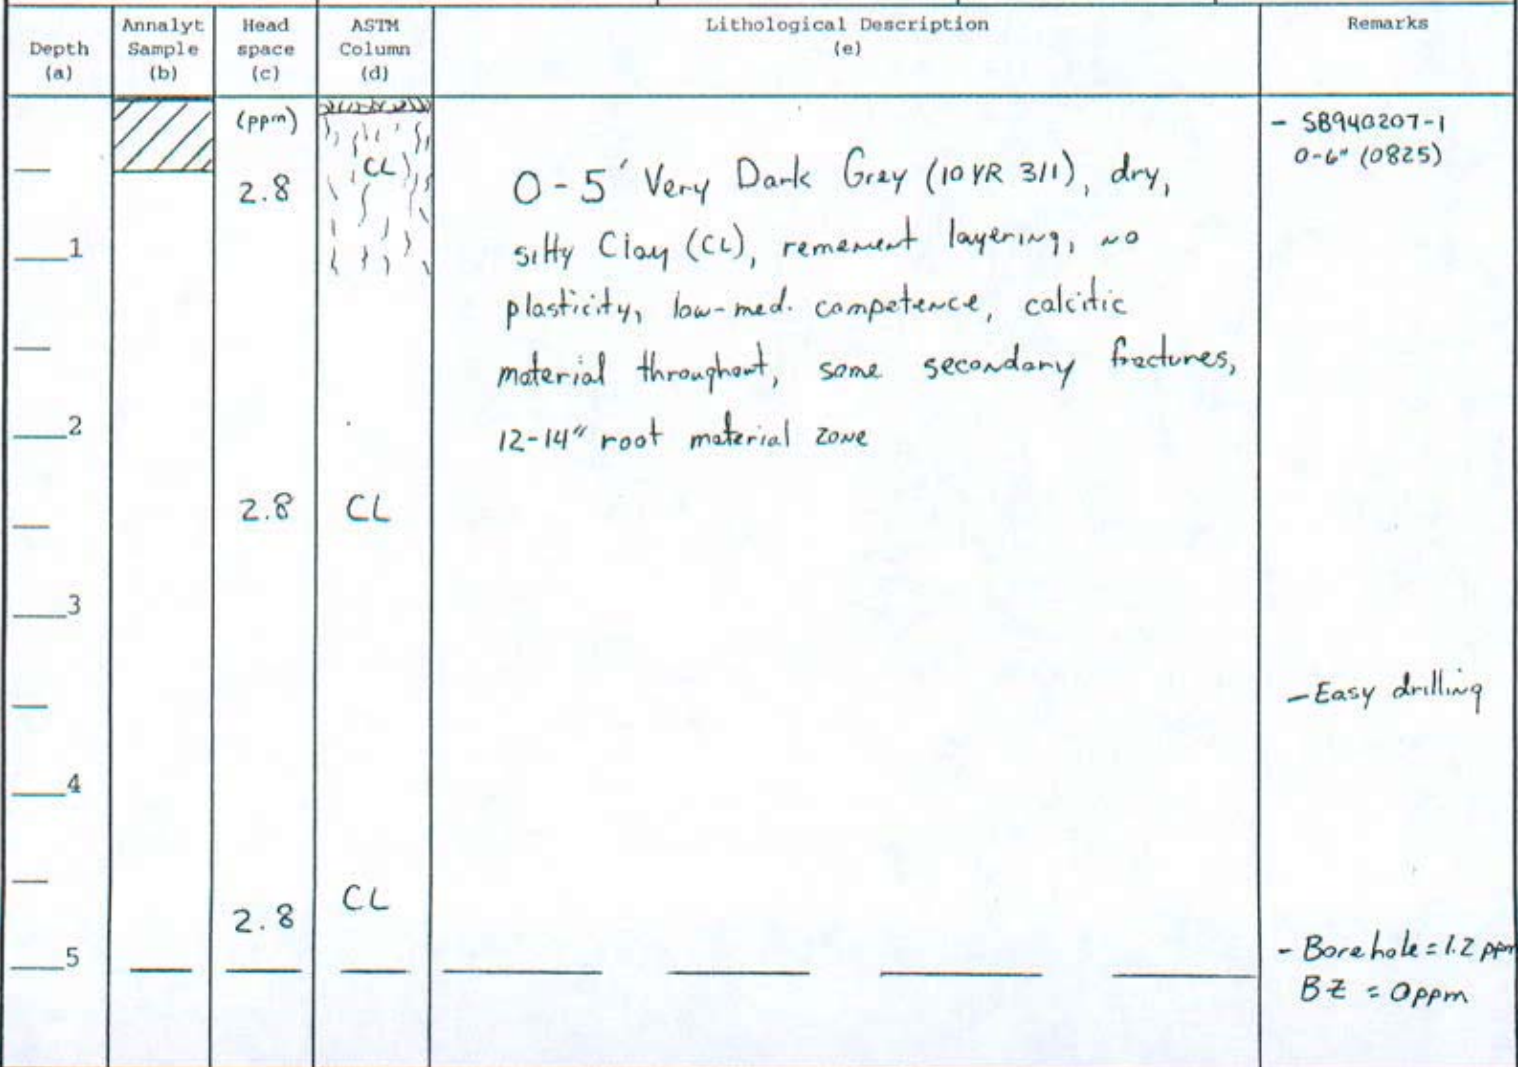 Depth
(a)
Annalyt
Sample
(b)
Head
space
(c)
ASTM
Column
(d)
Lithological Description
(e)
Remarks
(ppm)
CL
- SB940207-1
0-6" (0825)
2.8
0-5' Very Dark Grey (10YR 3/1), dry,
silty Clay (CL), remement layering, no
plasticity, low-med. competence, calcitic
material throughout, some secondary fractures,
12-14" root material zone
1
2
2.8
CL
3
- Easy drilling
4
CL
2.8
5
- Borehole = 1.2 ppm
BZ = 0ppm